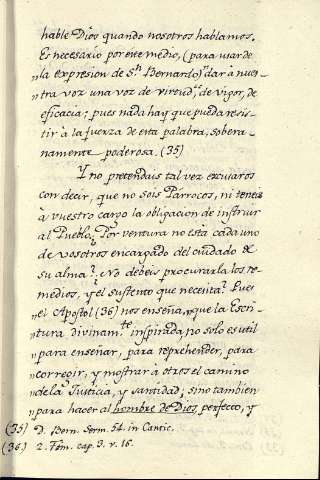 hable Dios quando nosotros hablamos.
Es necesario por este medio, (para usar de
„la expresion de Sn. Bernardo)" dar à nues-
„tra voz una voz de virtud, de vigor, de
eficacia; pues nada hay que pueda resis-
tir à la fuerza de esta palabra, sobera-
namente poderosa. (35)
Y no pretendais tal vez escusaros
con decir, que no sois Párrocos, ni teneis
à vuestro cargo la obligacion de instruir
al Pueblo. Por ventura no está cada uno
de vosotros encargado del cuidado de
su alma? No debeis procurarla los re-
medios, y el sustento que necesita? Pues
„el Apostol (36) nos enseña, „que la Escri-
„tura divinamte. inspirada no solo es util
„para enseñar, para reprehender, para
„corregir, y mostrar a otros el camino
„de la Justicia, y santidad; sino tambien
„para hacer al hombre de Dios, perfecto, y
(35) D. Bern. Serm. 54. in Cantic.
(36) 2. Tim. cap. 3. v. 16.